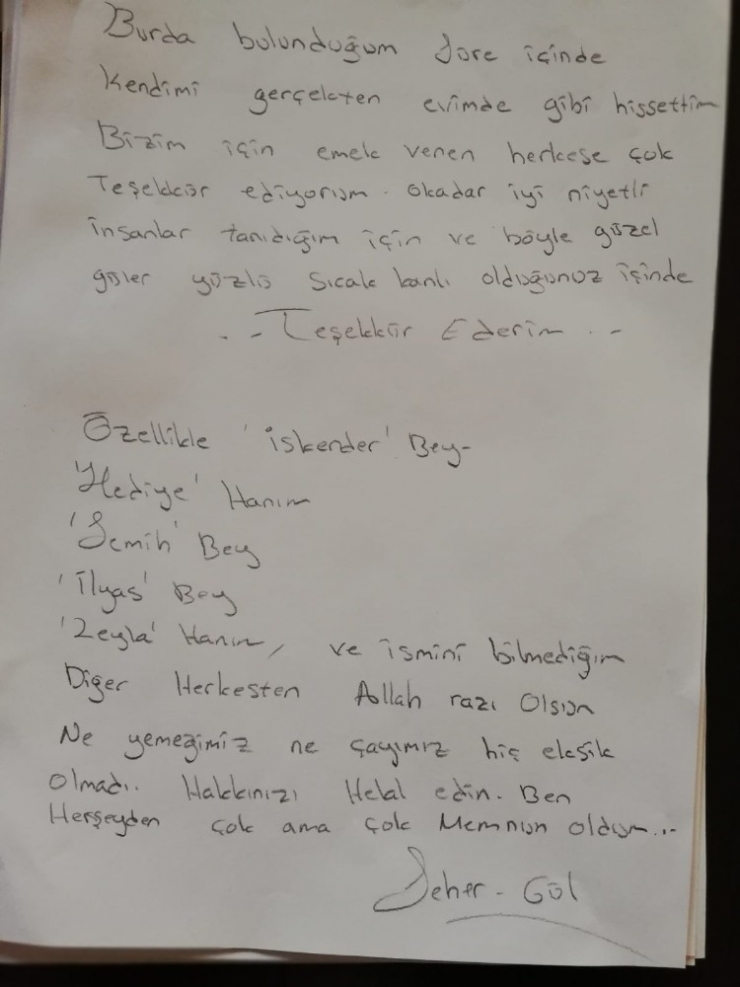 Burda bulunduğum süre içinde
Kendimi gerçekten evimde gibi hissettim
Bizim için emek veren herkese çok
Teşekkür ediyorum. Okadar iyi niyetli
insanlar tanıdığım için ve böyle güzel
güler yüzlü sıcak kanlı olduğunuz içinde
. .- Teşekkür Ederim . . -
Özellikle 'iskender' Bey-
'Hediye' Hanım
'Semih' Bey
'İlyas' Bey
'Zeyla' Hanım, ve ismini bilmediğim
Diğer Herkesten Allah razı Olsun
Ne yemeğimiz ne çayımız hiç eksik
Olmadı. Hakkınızı Helal edin. Ben
Herşeyden çok ama çok Memnun oldum...
Seher - Gül